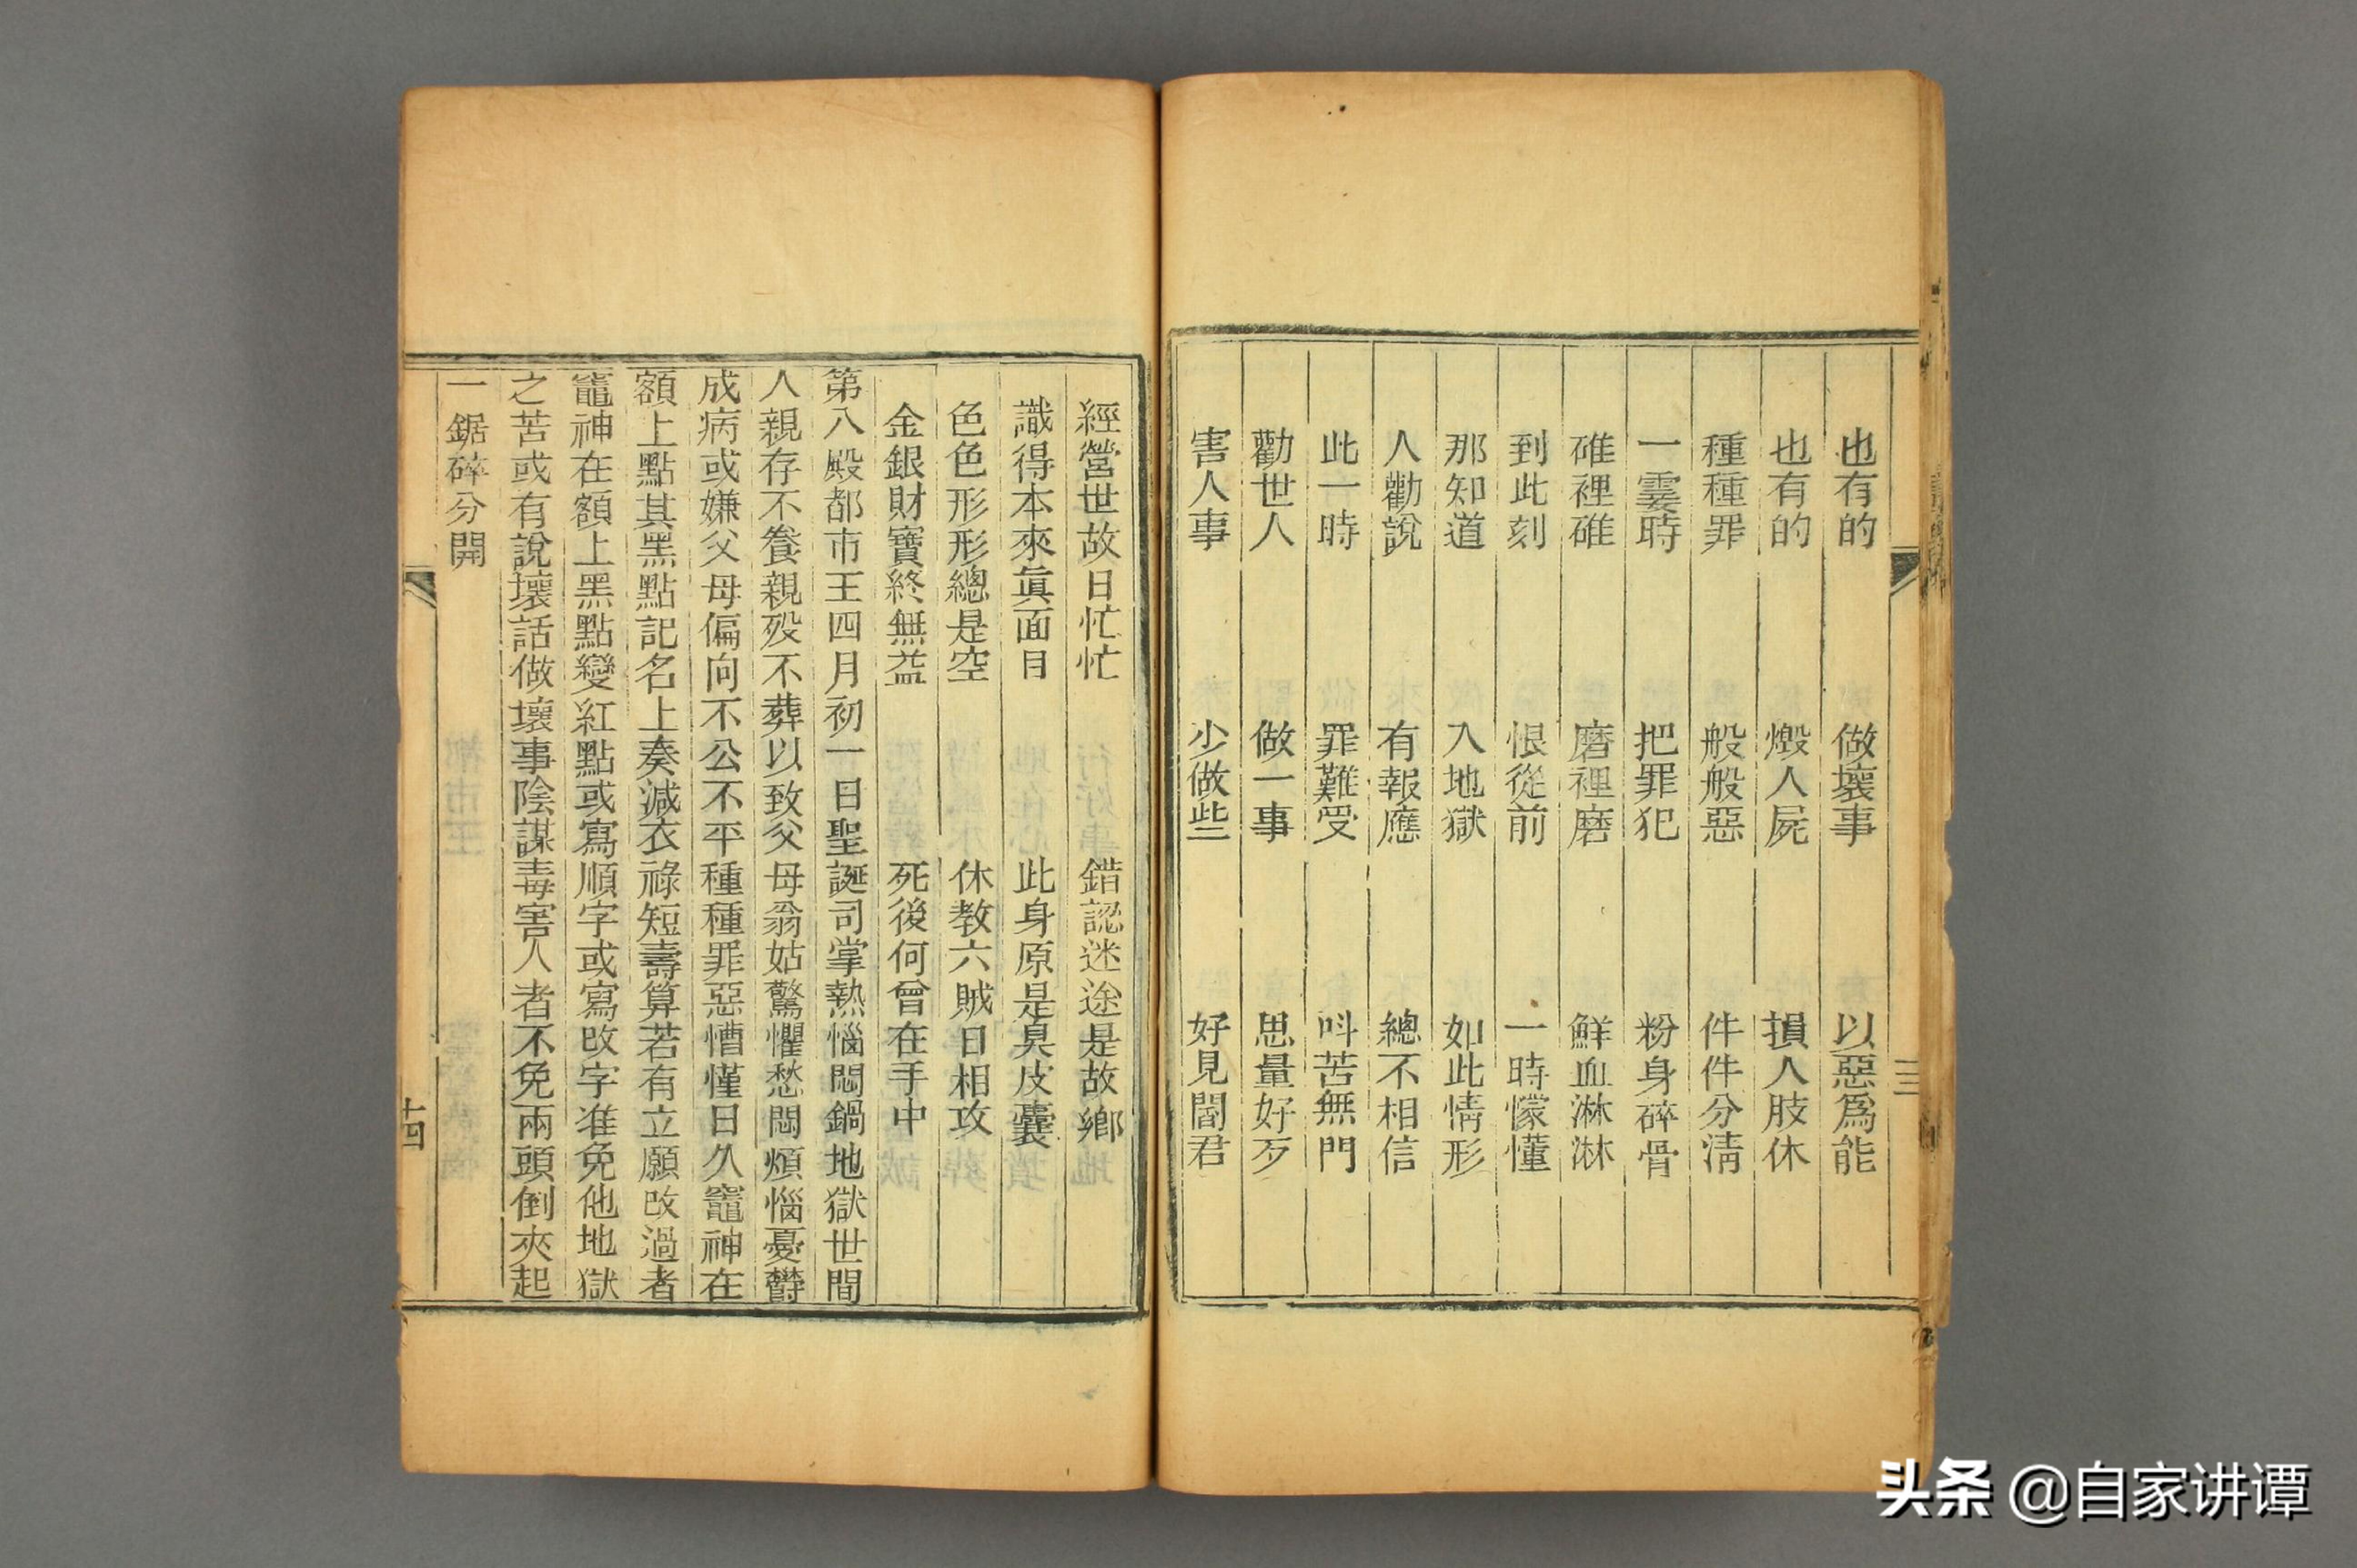 也有的 做壞事 以惡爲能
也有的 燬人屍 損人肢休
種種罪 般般惡 件件分清
一霎時 把罪犯 粉身碎骨
碓裡碓 磨裡磨 鮮血淋淋
到此刻 恨從前 一時懞懂
那知道 入地獄 如此情形
人勸說 有報應 總不相信
此一時 罪難受 呌苦無門
勸世人 做一事 思量好歹
害人事 少做些 好見閻君
經營世故日忙忙 錯認迷途是故鄉
識得本來眞面目 此身原是臭皮囊
色色形形總是空 休教六賊日相攻
金銀財寶終無益 死後何曾在手中
第八殿都市王四月初一日聖誕司掌熱惱悶鍋地獄世間
人親存不養親殁不葬以致父母翁姑驚懼愁悶煩惱憂欝
成病或嫌父母偏向不公不平種種罪惡懵懂日久竈神在
額上點其黑點記名上奏減衣祿短壽算若有立願改過者
竈神在額上黑點變紅點或寫順字或寫改字准免他地獄
之苦或有說壞話做壞事陰謀毒害人者不免兩頭倒夾起
一鋸碎分開
十四
头条 @自家讲谭